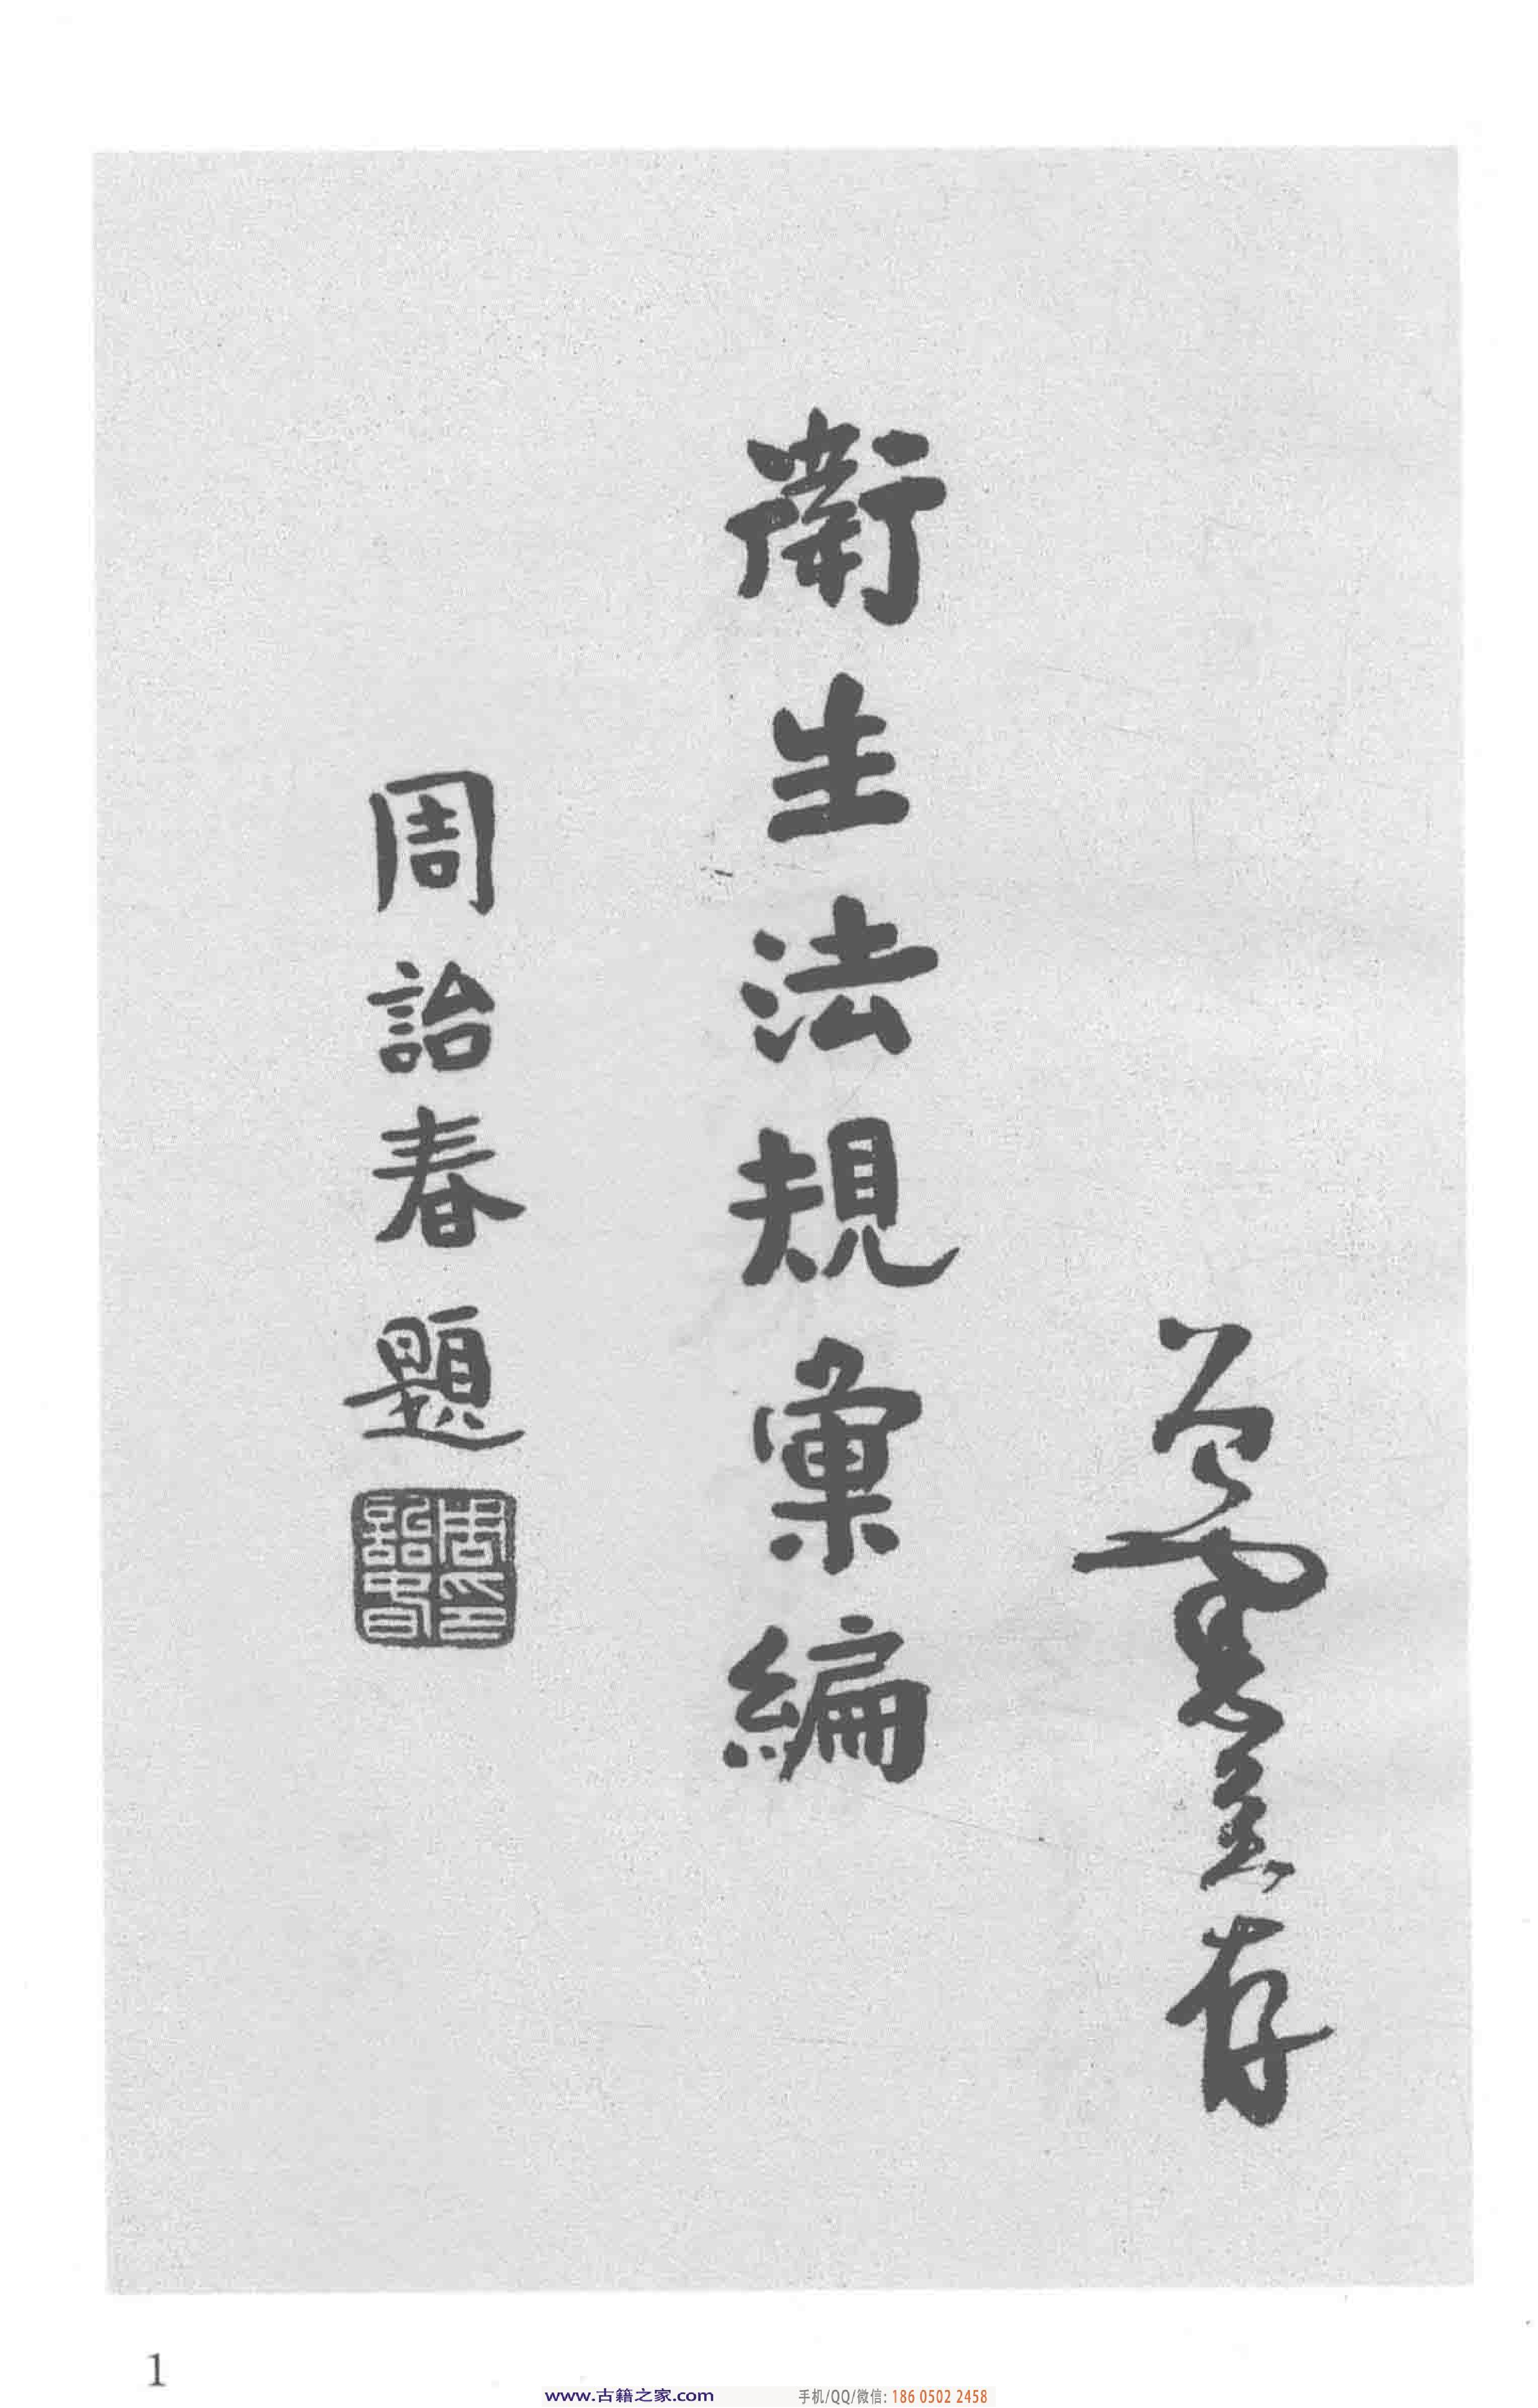 存
衞生法規彙編
周詒春題
周詒春印
1
www.古籍之家.com 手机/QQ/微信: 186 0502 2458